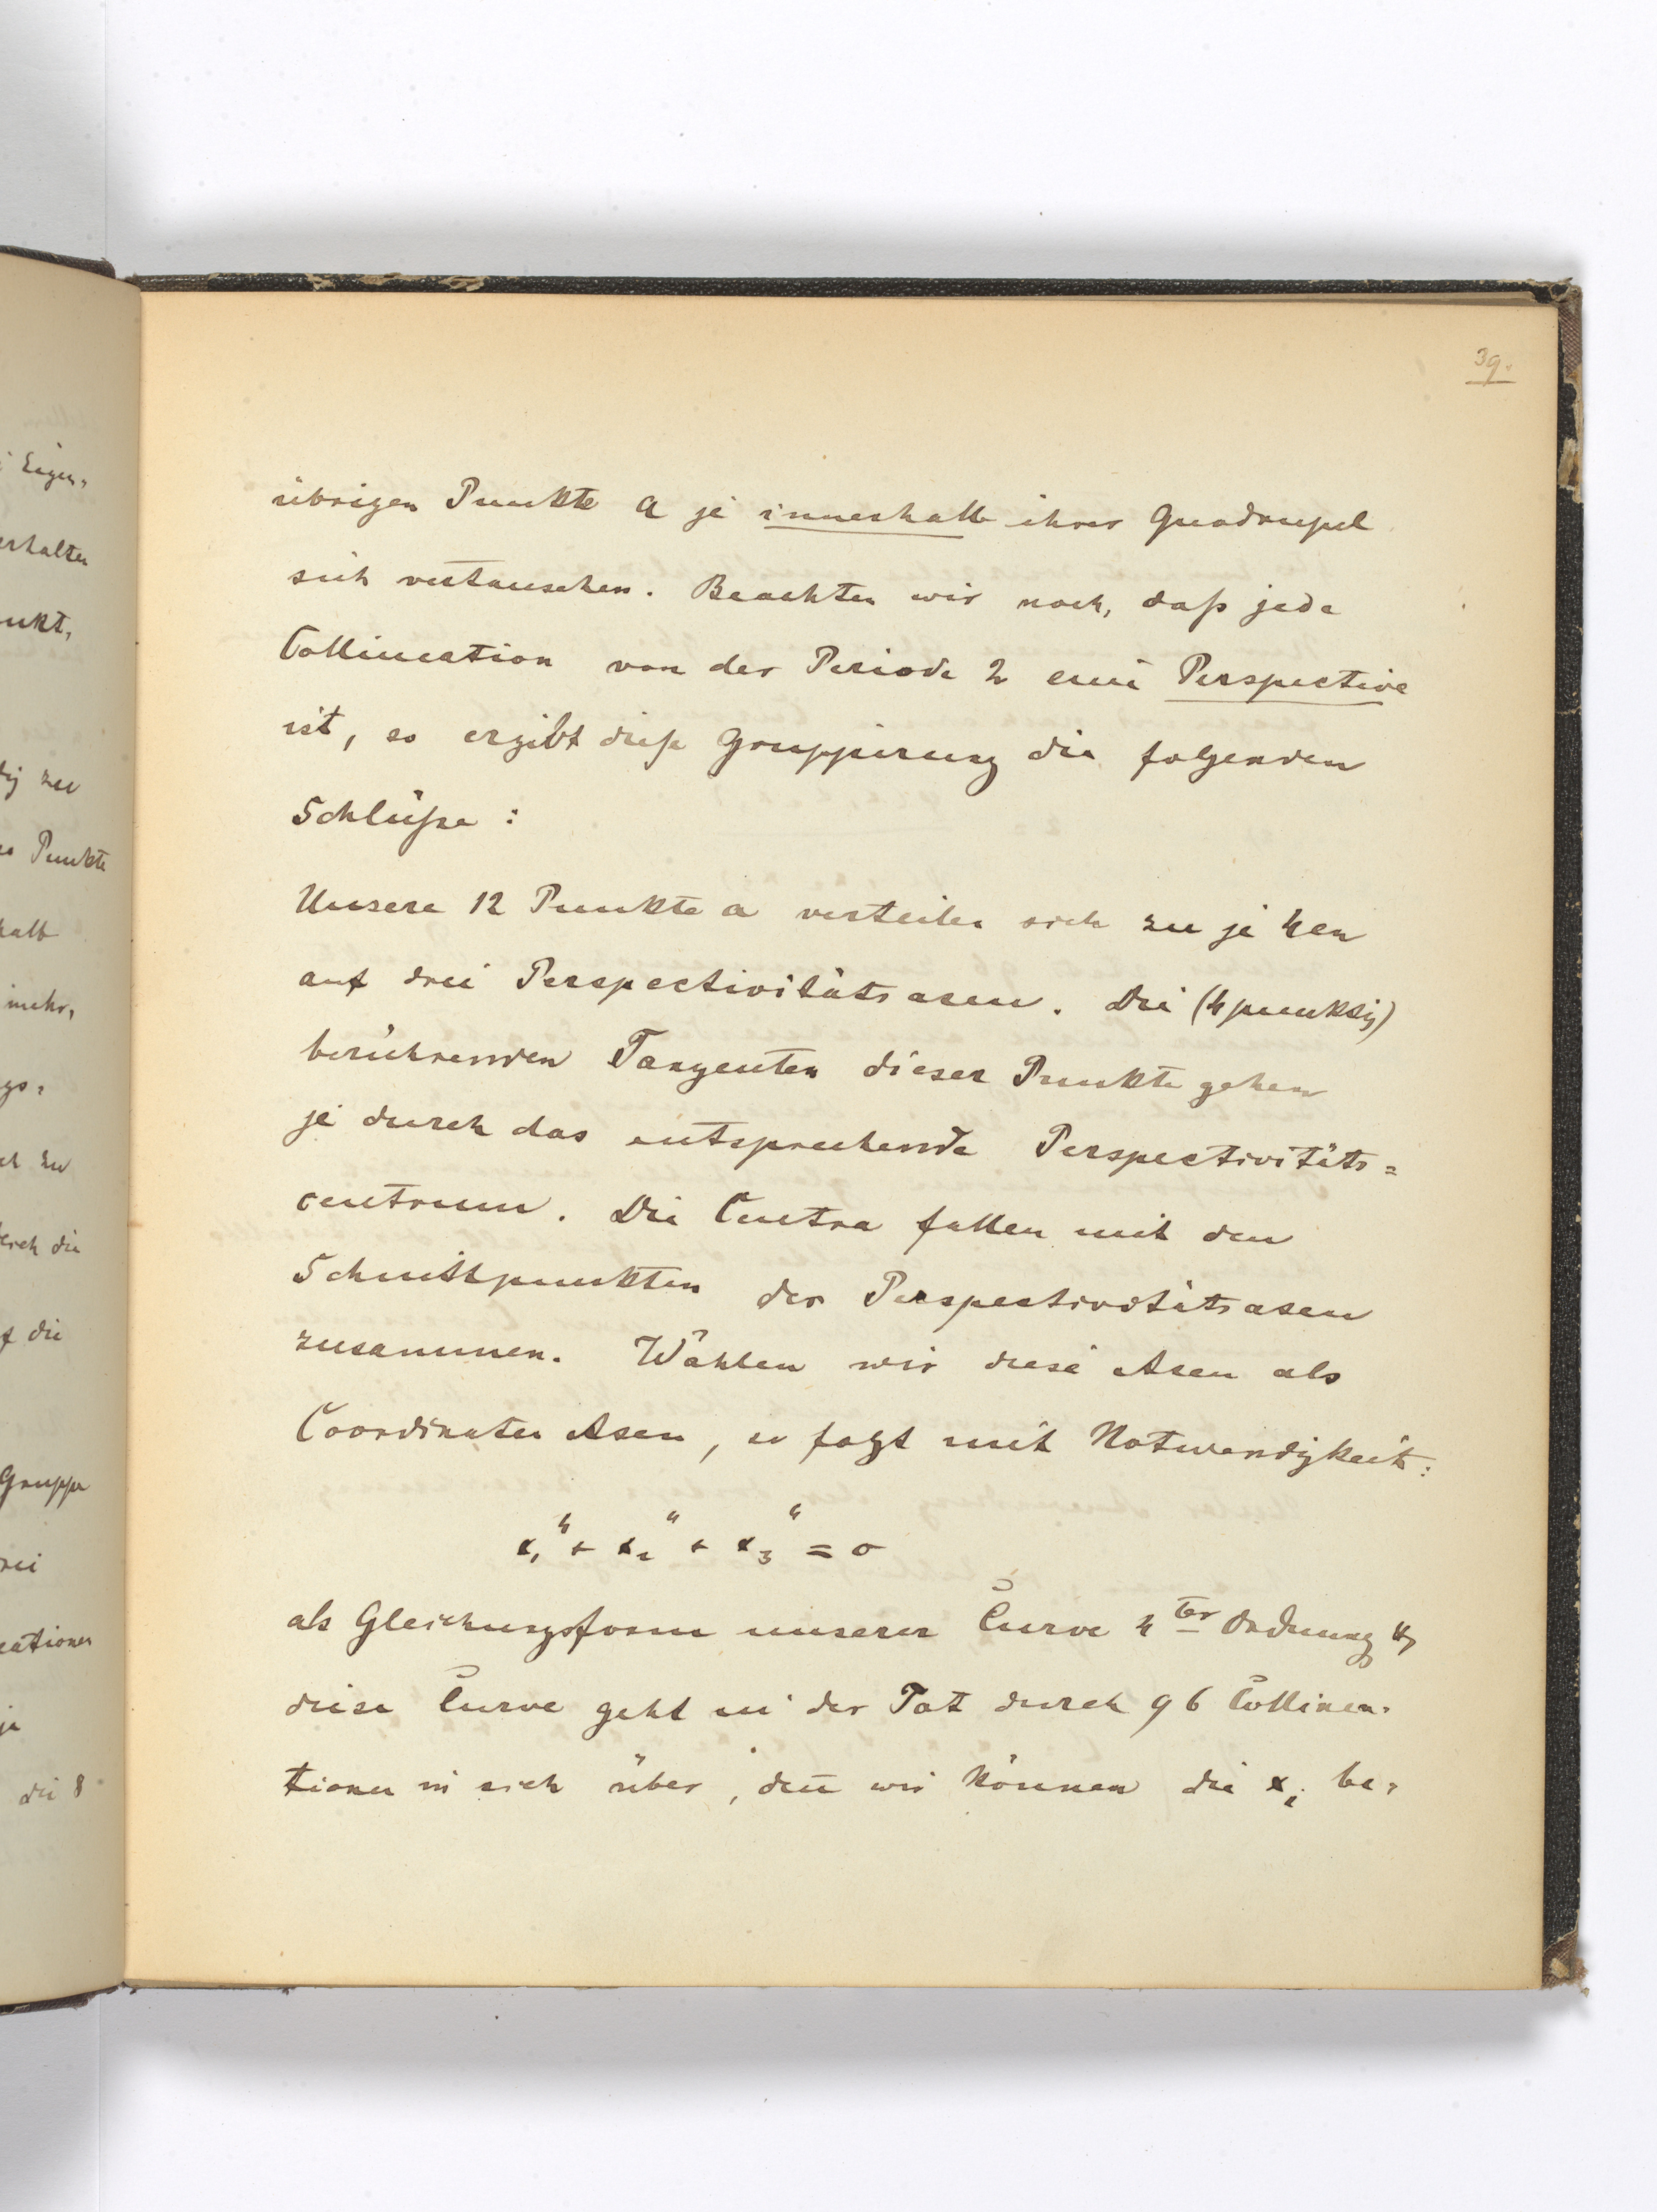 39.
übrigen Punkte a je innerhalb ihrer Quadrupel
sich vertauschen. Beachten wir noch, daß jede
Collineation von der Periode 2 eine Perspective
ist, so ergibt diese Gruppirung die folgenden
Schlüße:
Unsere 12 Punkte a verteilen sich zu je 4en
auf drei Perspectivitätsaxen. Die (4punktig)
berührenden Tangenten dieser Punkte gehen
je durch das entsprechende Perspectivitäts=
centrum. Die Centra fallen mit den
Schnittpunkten der Perspectivitätsaxen
zusammen. Wählen wir diese Axen als
Coordinaten Axen, so folgt mit Notwendigkeit:
x₁⁴ + x₂⁴ + x₃⁴ = 0
als Gleichungsform unserer Curve 4ter Ordnung u
diese Curve geht in der Tat durch 96 Collinea-
tionen in sich über, den̄ wir können die xᵢ be-
Eigen-
erhalten
unkt,
dig zu
Punkte
halb
mehr,
ch zu
durch die
f die
Gruppe
rei
eationen
je
die 8